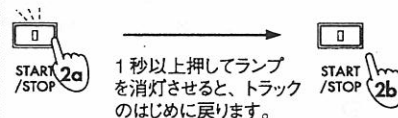 START
/STOP
2a
1秒以上押してランプ
を消灯させると、トラック
のはじめに戻ります。
START
/STOP
2b